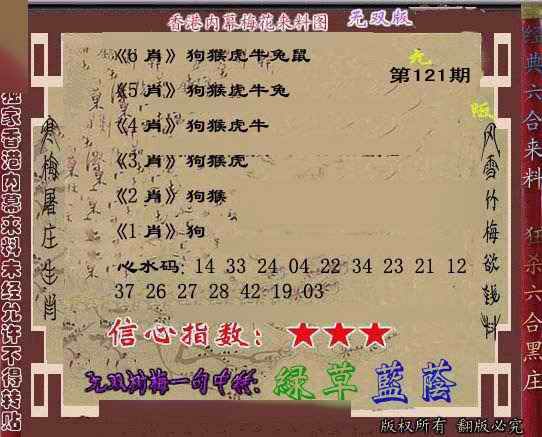 香港内幕梅花来料图 无双版
《6 肖》狗猴虎牛兔鼠
第121期
《5 肖》狗猴虎牛兔
《4 肖》狗猴虎牛
《3 肖》狗猴虎
《2 肖》狗猴
《1 肖》狗
心水码: 14 33 24 04 22 34 23 21 12
37 26 27 28 42 19 03
信心指数: ★★★
无双浏梅一句中特: 绿草蓝荫
版权所有 翻版必究
独家香港内幕来料未经允许不得转贴
寒梅屠庄生肖
风雪竹梅欲钱料
经典六合来料 狂杀六合黑庄